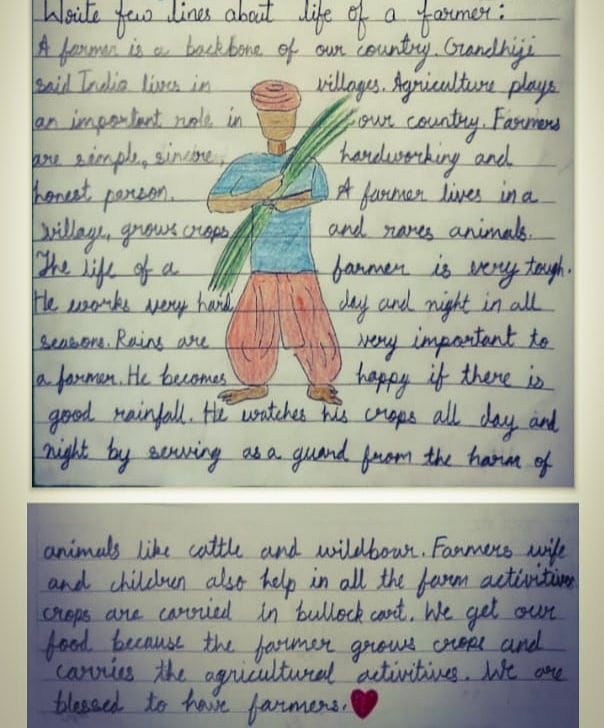 Write few lines about life of a farmer:
A farmer is a backbone of our country. Grandhiji
said India lives in villages. Agriculture plays
an important role in our country. Farmers
are simple, sincere, hardworking and
honest person. A farmer lives in a
village, grows crops and rares animals.
The life of a farmer is very tough.
He works very hard day and night in all
seasons. Rains are very important to
a farmer. He becomes happy if there is
good rainfall. He watches his crops all day and
night by serving as a guard from the harm of
animals like cattle and wildboar. Farmers wife
and children also help in all the farm activitives
crops are carried in bullock cart. We get our
food because the farmer grows crops and
carries the agricultural activitives. We are
blessed to have farmers.